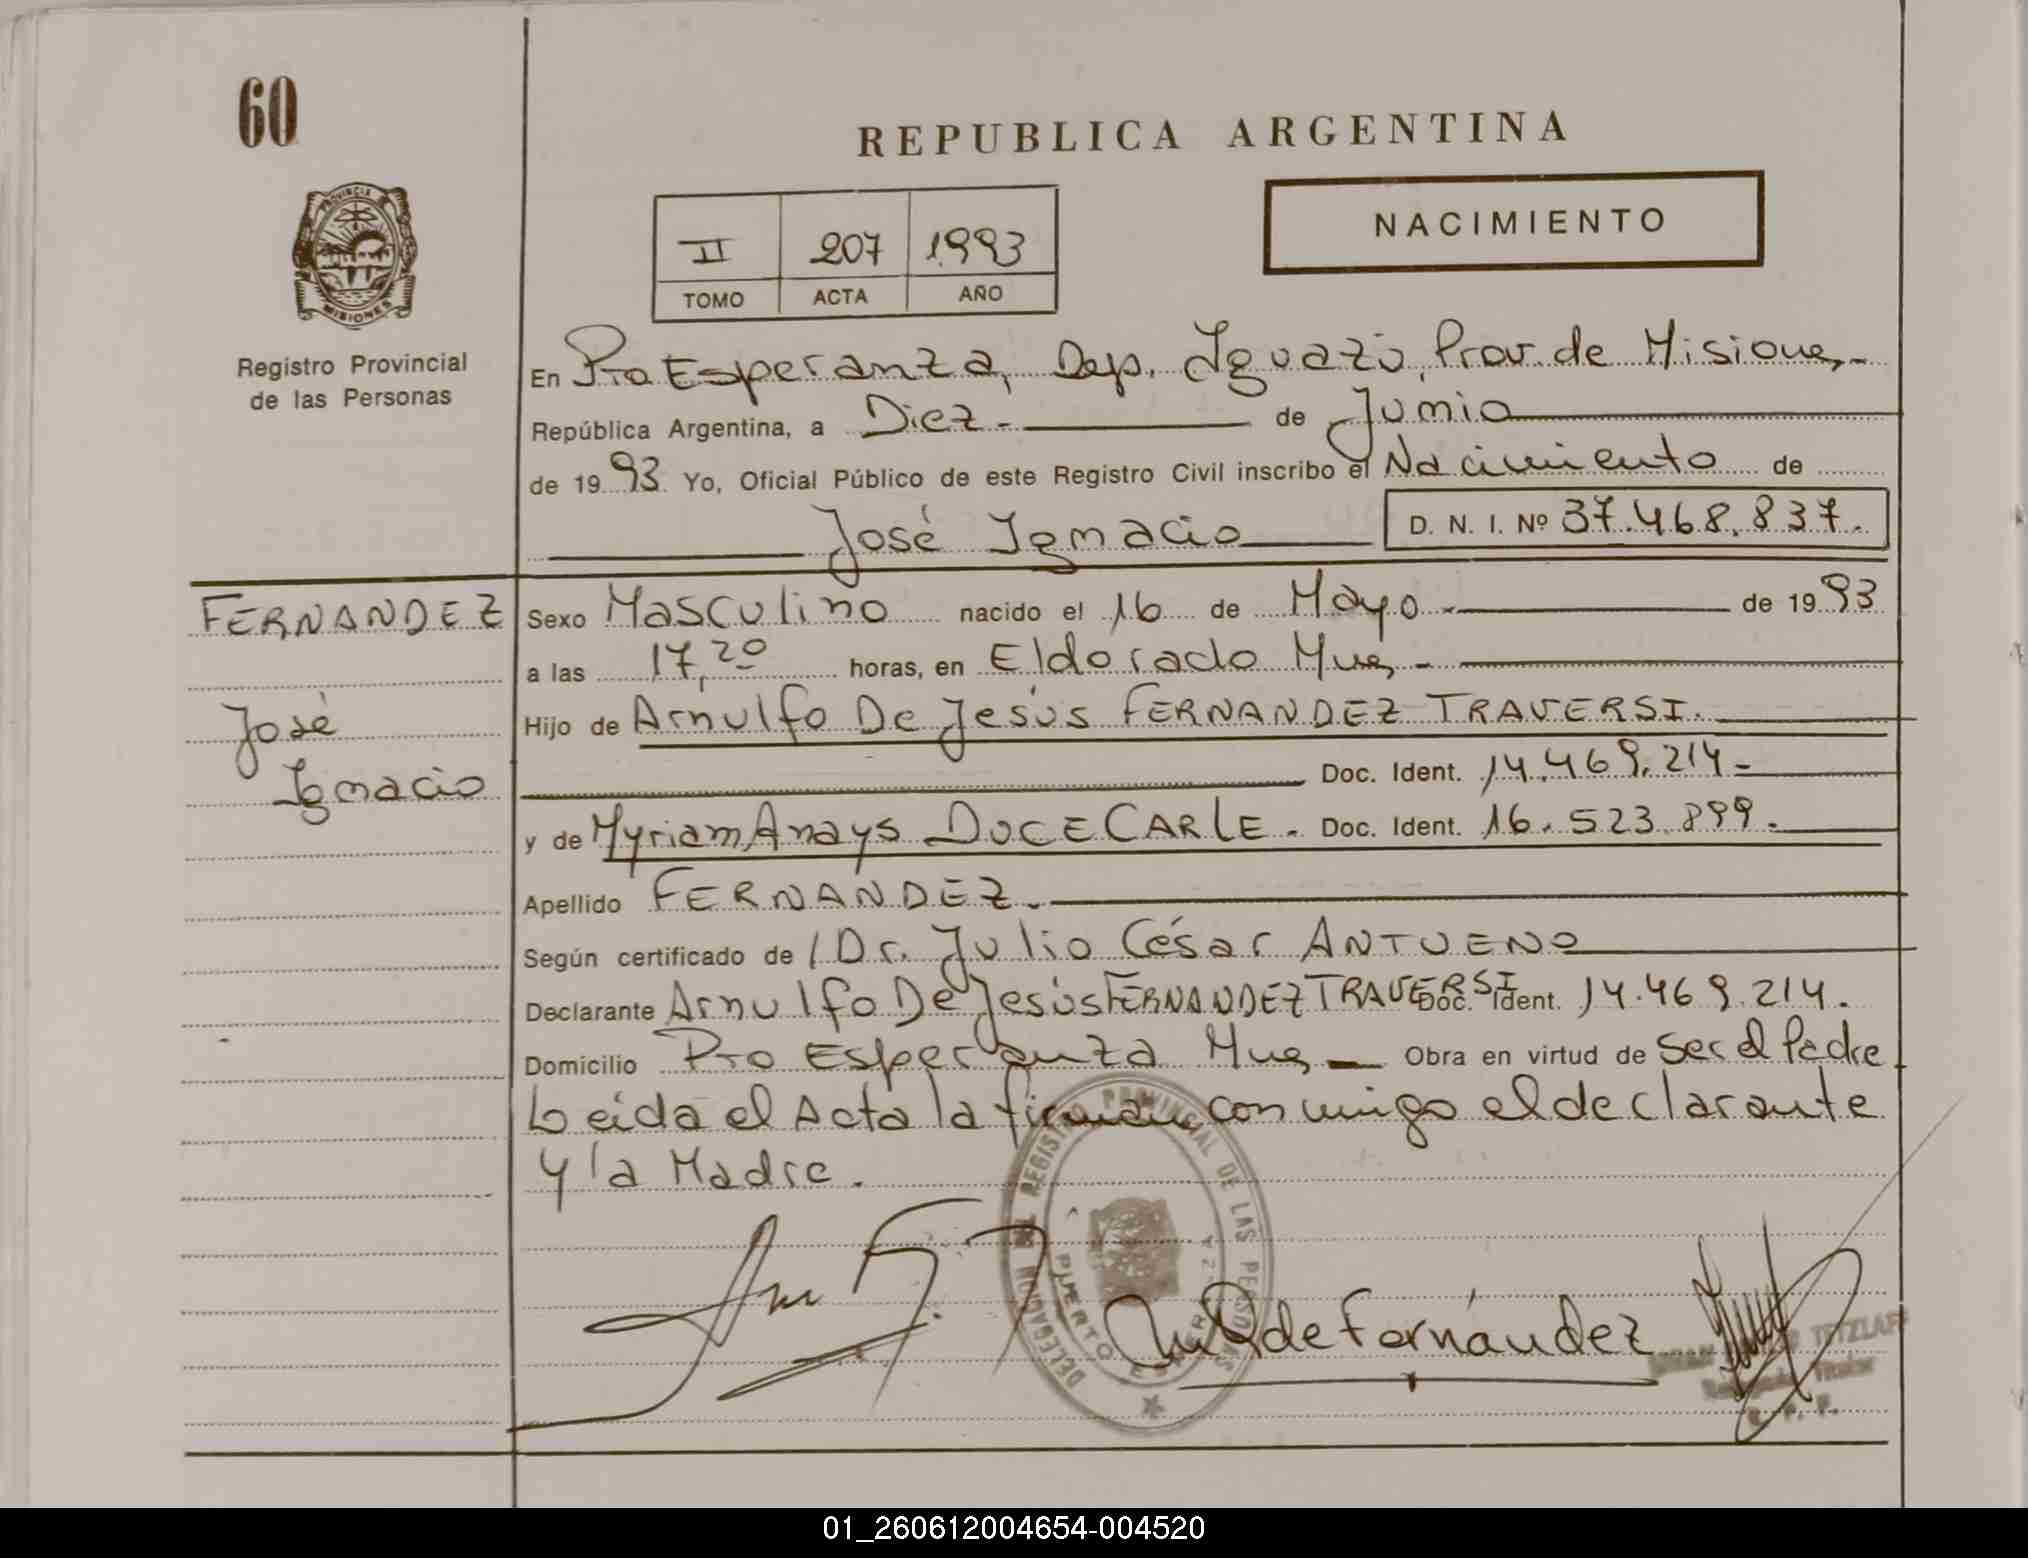 60
REPUBLICA ARGENTINA
NACIMIENTO
II 207 1993
TOMO ACTA AÑO
PROVINCIA
MISIONES
Registro Provincial
de las Personas
En Pto Esperanza, Dep. Iguazú, Prov. de Misiones.-
República Argentina, a Diez.- de Junio
de 1993 Yo, Oficial Público de este Registro Civil inscribo el Nacimiento de
José Ignacio D. N. I. Nº 37.468.837.
FERNANDEZ
José
Ignacio
Sexo Masculino nacido el 16 de Mayo.- de 1993
a las 17,20 horas, en Eldorado Mnes -
Hijo de Arnulfo De Jesús FERNANDEZ TRAVERSI.
Doc. Ident. 14.469.214-
y de Myriam Anays DUCE CARLE. Doc. Ident. 16.523.899.
Apellido FERNANDEZ.
Según certificado de / Dr. Julio César ANTUENO
Declarante Arnulfo De Jesús FERNANDEZ TRAVERSI Doc. Ident. 14.469.214.
Domicilio Pto Esperanza Mnes - Obra en virtud de Ser el Padre
Leida el Acta la firman conmigo el declarante
y la Madre.
DELEGACION DEL REGISTRO PROVINCIAL DE LAS PERSONAS
PUERTO ESPERANZA
de Fernández
TETZLAFF
Titular
R. P. P.
01_260612004654-004520